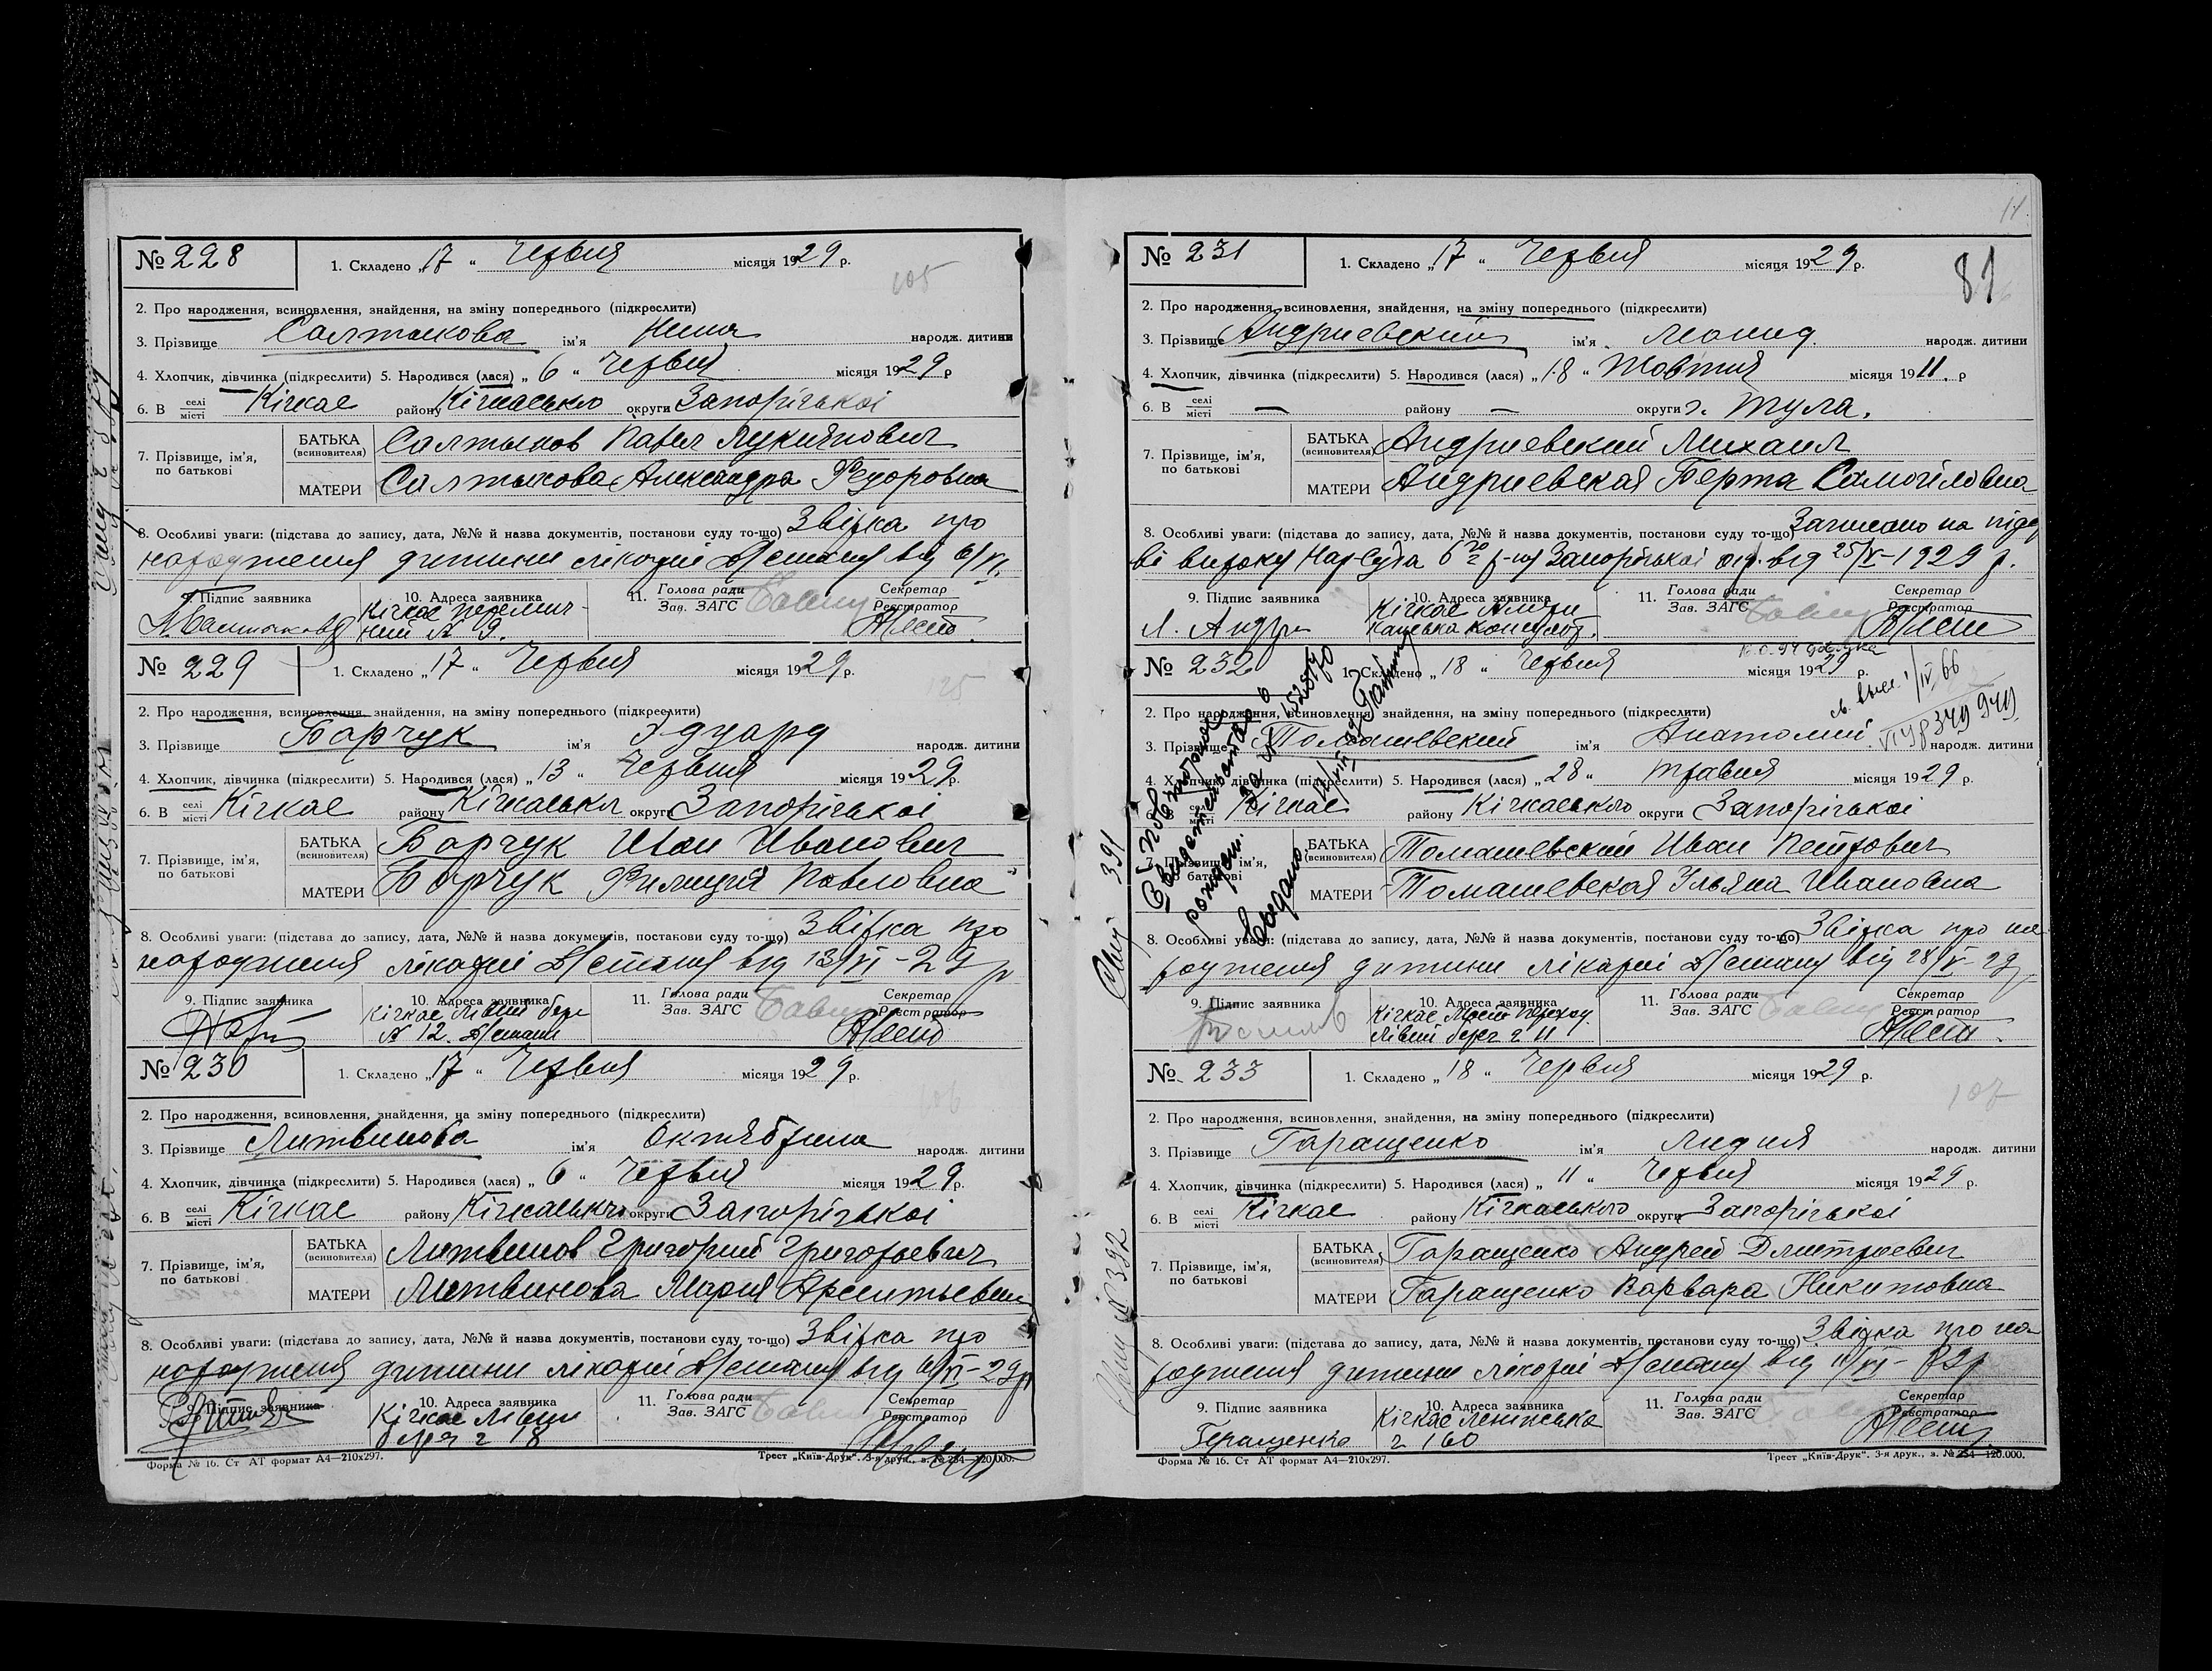 № 228
1. Складено „17“ Червня місяця 1929 р.
105
2. Про народження, всиновлення, знайдення, на зміну попереднього (підкреслити)
3. Прізвище Салтыкова ім'я Нина народж. дитини
4. Хлопчик, дівчинка (підкреслити) 5. Народився (лася) „6“ Червня місяця 1929 р
6. В селі місті Кічкас району Кічкаського округи Запорізької
7. Прізвище, ім'я, по батькові
БАТЬКА (всиновителя) Салтыков Павел Лукиянович
МАТЕРИ Салтыкова Александра Федоровна
8. Особливі уваги: (підстава до запису, дата, №№ й назва документів, постанови суду то-що) Звістка про
народження дитини лікарні від 6/VI.
9. Підпис заявника
10. Адреса заявника Кічкас
№ 9.
11. Голова ради Зав. ЗАГС
Секретар Реєстратор
№ 229
1. Складено „17“ Червня місяця 1929 р.
125
2. Про народження, всиновлення, знайдення, на зміну попереднього (підкреслити)
3. Прізвище Барчук ім'я Эдуард народж. дитини
4. Хлопчик, дівчинка (підкреслити) 5. Народився (лася) „13“ Червня місяця 1929 р.
6. В селі місті Кічкас району Кічкаськл округи Запорізької
7. Прізвище, ім'я, по батькові
БАТЬКА (всиновителя) Барчук Иван Иванович
МАТЕРИ Барчук Филиция Павловна
8. Особливі уваги: (підстава до запису, дата, №№ й назва документів, постанови суду то-що) Звістка про
народження лікарні від 13/VI - 29 р
9. Підпис заявника
10. Адреса заявника Кічкас Лівий бер.
№ 12.
11. Голова ради Зав. ЗАГС
Секретар Реєстратор
№ 230
1. Складено „17“ Червня місяця 1929 р.
106
2. Про народження, всиновлення, знайдення, на зміну попереднього (підкреслити)
3. Прізвище Литвинова ім'я Октябрина народж. дитини
4. Хлопчик, дівчинка (підкреслити) 5. Народився (лася) „6“ Червня місяця 1929 р.
6. В селі місті Кічкас району Кічкаського округи Запорізької
7. Прізвище, ім'я, по батькові
БАТЬКА (всиновителя) Литвинов Григорий Григорьевич
МАТЕРИ Литвинова Мария Арсентьевна
8. Особливі уваги: (підстава до запису, дата, №№ й назва документів, постанови суду то-що) Звістка про
народження дитини лікарні від 6/VI - 29 р
9. Підпис заявника
10. Адреса заявника Кічкас Лівий
берег 2 18
11. Голова ради Зав. ЗАГС
Секретар Реєстратор
Форма № 16. Ст АТ формат А4—210х297.
Трест „Київ-Друк“. 3-я друк., з. № 254—120.000.
81
№ 231
1. Складено „17“ Червня місяця 1929 р.
2. Про народження, всиновлення, знайдення, на зміну попереднього (підкреслити)
3. Прізвище Андриевский ім'я Леонид народж. дитини
4. Хлопчик, дівчинка (підкреслити) 5. Народився (лася) „18“ Жовтня місяця 1911. р
6. В селі місті — району — округи г. Тула.
7. Прізвище, ім'я, по батькові
БАТЬКА (всиновителя) Андриевский Михаил
МАТЕРИ Андриевская Берта Самойловна
8. Особливі уваги: (підстава до запису, дата, №№ й назва документів, постанови суду то-що) Записано на підс
ві вироку НарСуда 6го р-ну Запорізької окр. від 25/V - 1929 р.
9. Підпис заявника Л. Андри
10. Адреса заявника Кічкас Амери
канська консульт.
11. Голова ради Зав. ЗАГС
Секретар Реєстратор
№ 232
1. Складено „18“ Червня місяця 1929 р.
1/IV 66
VI ЧЯ 349 949
2. Про народження, всиновлення, знайдення, на зміну попереднього (підкреслити)
3. Прізвище Томашевский ім'я Анатолий народж. дитини
4. Хлопчик, дівчинка (підкреслити) 5. Народився (лася) „28“ травня місяця 1929 р.
6. В селі місті Кічкас району Кічкаського округи Запорізької
7. Прізвище, ім'я, по батькові
БАТЬКА (всиновителя) Томашевский Иван Петрович
МАТЕРИ Томашевская Ульяна Ивановна
8. Особливі уваги: (підстава до запису, дата, №№ й назва документів, постанови суду то-що) Звістка про на
родження дитини лікарні від 28/V - 29
9. Підпис заявника
10. Адреса заявника Кічкас
Лівий берег 2 11
11. Голова ради Зав. ЗАГС
Секретар Реєстратор
Повторное
Свидетельство о
рожден.
Выдано
391
№ 233
1. Складено „18“ Червня місяця 1929 р.
107
2. Про народження, всиновлення, знайдення, на зміну попереднього (підкреслити)
3. Прізвище Гаращенко ім'я Лидия народж. дитини
4. Хлопчик, дівчинка (підкреслити) 5. Народився (лася) „11“ Червня місяця 1929 р.
6. В селі місті Кічкас району Кічкаського округи Запорізької
7. Прізвище, ім'я, по батькові
БАТЬКА (всиновителя) Гаращенко Андрей Дмитриевич
МАТЕРИ Гаращенко Варвара Никитовна
8. Особливі уваги: (підстава до запису, дата, №№ й назва документів, постанови суду то-що) Звістка про на
родження дитини лікарні від 11/VI - 29 р
9. Підпис заявника Геращенко
10. Адреса заявника Кічкас Ленінська
2 160
11. Голова ради Зав. ЗАГС
Секретар Реєстратор
№ 392
Форма № 16. Ст АТ формат А4—210х297.
Трест „Київ-Друк“. 3-я друк., з. № 254—120.000.